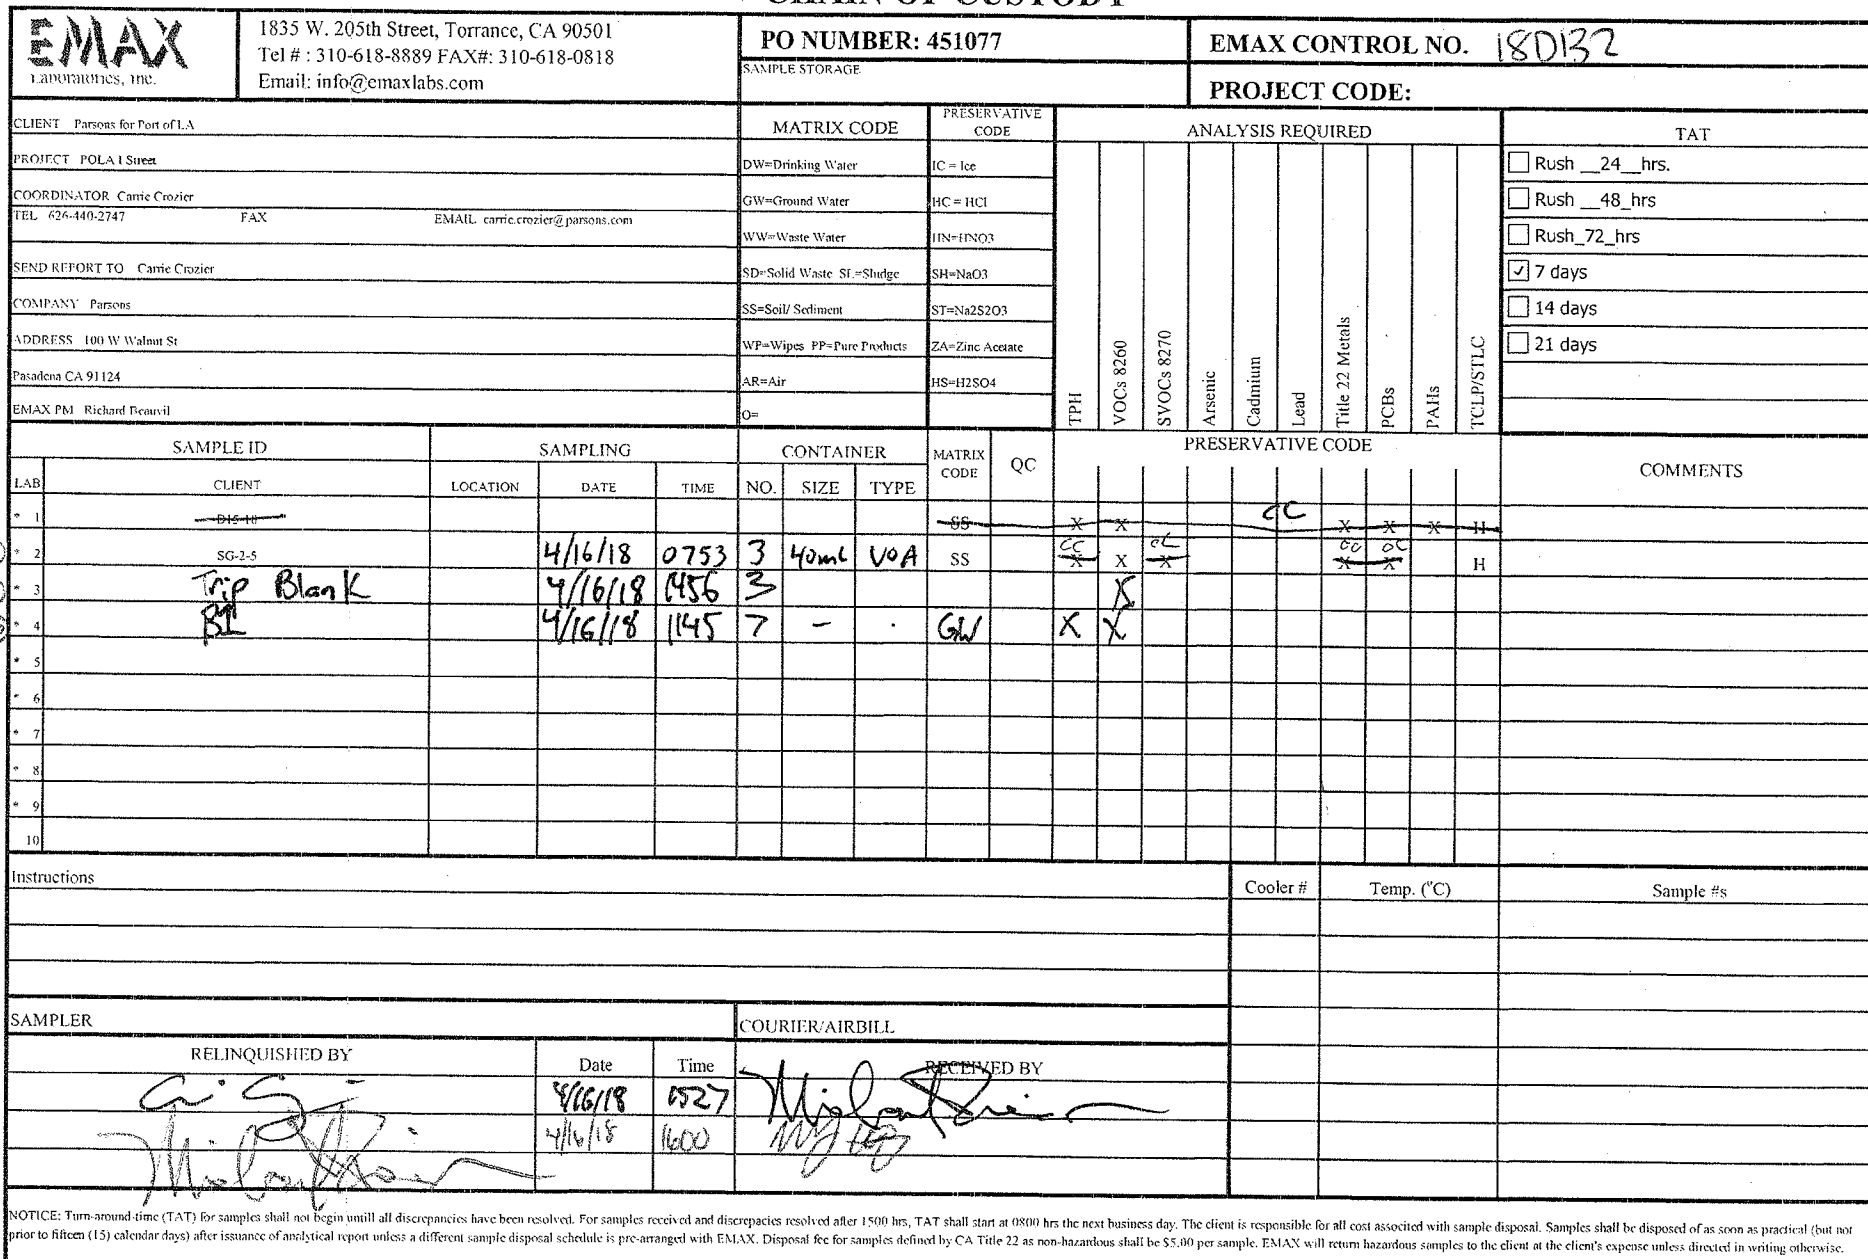 CHAIN OF CUSTODY
EMAX
Laboratories, Inc.
1835 W. 205th Street, Torrance, CA 90501
Tel # : 310-618-8889 FAX#: 310-618-0818
Email: info@emaxlabs.com
PO NUMBER: 451077
SAMPLE STORAGE
EMAX CONTROL NO. 18D132
PROJECT CODE:
CLIENT Parsons for Port of LA
PROJECT POLA I Street
COORDINATOR Carrie Crozier
TEL 626-440-2747 FAX EMAIL carrie.crozier@parsons.com
SEND REPORT TO Carrie Crozier
COMPANY Parsons
ADDRESS 100 W Walnut St
Pasadena CA 91124
EMAX PM Richard Beauvil
MATRIX CODE
DW=Drinking Water
GW=Ground Water
WW=Waste Water
SD=Solid Waste SL=Sludge
SS=Soil/ Sediment
WP=Wipes PP=Pure Products
AR=Air
O=
PRESERVATIVE CODE
IC = Ice
HC = HCl
HN=HNO3
SH=NaO3
ST=Na2S2O3
ZA=Zinc Acetate
HS=H2SO4
ANALYSIS REQUIRED
TPH
VOCs 8260
SVOCs 8270
Arsenic
Cadmium
Lead
Title 22 Metals
PCBs
PAHs
TCLP/STLC
TAT
Rush __24__hrs.
Rush __48_hrs
Rush_72_hrs
✓ 7 days
14 days
21 days
SAMPLE ID SAMPLING CONTAINER MATRIX CODE QC PRESERVATIVE CODE COMMENTS
LAB CLIENT LOCATION DATE TIME NO. SIZE TYPE
* 1 D15-10 SS X X CC X X X H
* 2 SG-2-5 4/16/18 0753 3 40mL VOA SS CC X X CC X CC X CC X H
* 3 Trip Blank 4/16/18 1456 3 X
* 4 B1 4/16/18 1145 7 - . GW X X
* 5
* 6
* 7
* 8
* 9
10
Instructions
Cooler # Temp. (°C) Sample #s
SAMPLER
COURIER/AIRBILL
RELINQUISHED BY Date Time RECEIVED BY
4/16/18 1527
4/16/18 1600
NOTICE: Turn-around-time (TAT) for samples shall not begin untill all discrepancies have been resolved. For samples received and discrepacies resolved after 1500 hrs, TAT shall start at 0800 hrs the next business day. The client is responsible for all cost associted with sample disposal. Samples shall be disposed of as soon as practical (but not
prior to fifteen (15) calendar days) after issuance of analytical report unless a different sample disposal schedule is pre-arranged with EMAX. Disposal fee for samples defined by CA Title 22 as non-hazardous shall be $5.00 per sample. EMAX will return hazardous samples to the client at the client's expense unless directed in writing otherwise.